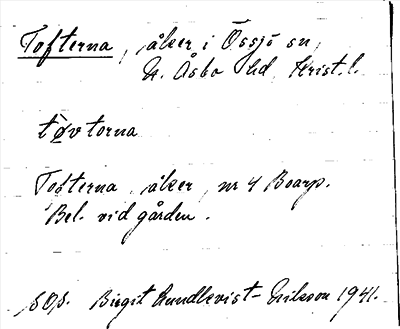 Tofterna, åker i Össjö sn,
N. Åsbo hd, Krist. l.
tøvtorna
Tofterna, åker, nr 4 Boarp.
Bel. vid gården.
Birgit Lundkvist-Eriksson 1941.